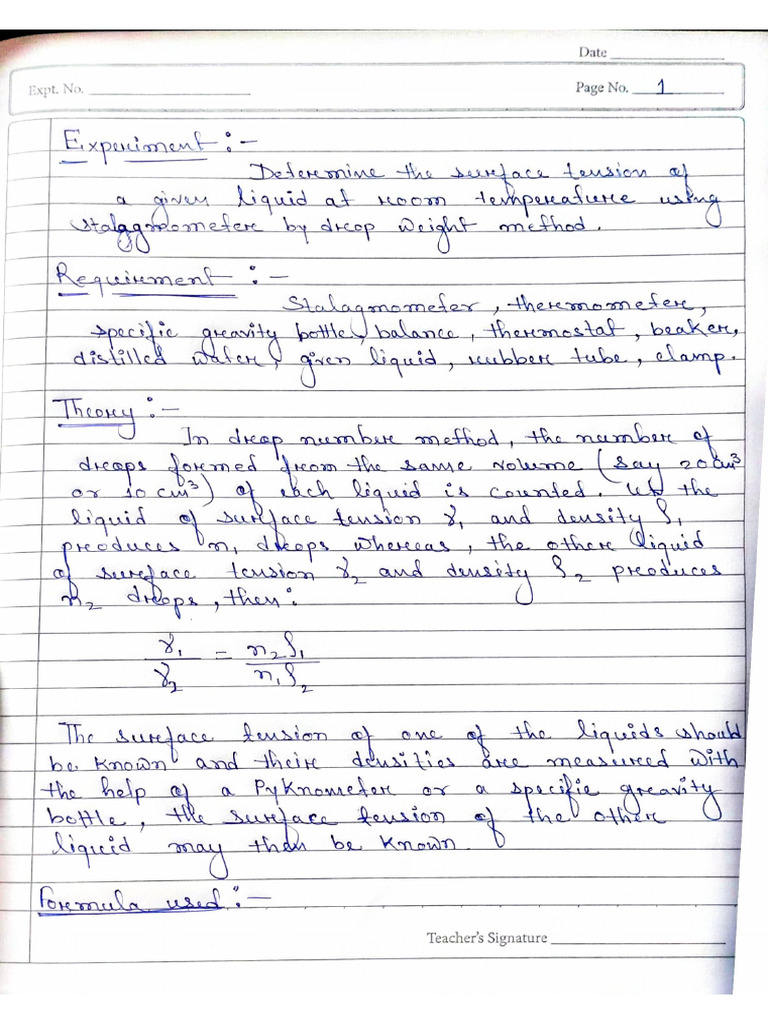 Date
Expt. No.
Page No. 1
Experiment :-
Determine the surface tension of
a given liquid at room temperature using
Stalagmometer by drop weight method.
Requirment :-
Stalagmometer, thermometer,
specific gravity bottle, balance, thermostat, beaker,
distilled water, given liquid, rubber tube, clamp.
Theory :-
In drop number method, the number of
drops formed from the same volume (say 20 cm³
or 10 cm³) of each liquid is counted. If the
liquid of surface tension γ₁ and density ρ₁
produces n₁ drops whereas, the other liquid
of surface tension γ₂ and density ρ₂ produces
n₂ drops, then:
γ₁/γ₂ = n₂ρ₁/n₁ρ₂
The surface tension of one of the liquids should
be known and their densities are measured with
the help of a Pyknometer or a specific gravity
bottle, the surface tension of the other
liquid may than be known.
Formula used :-
Teacher's Signature